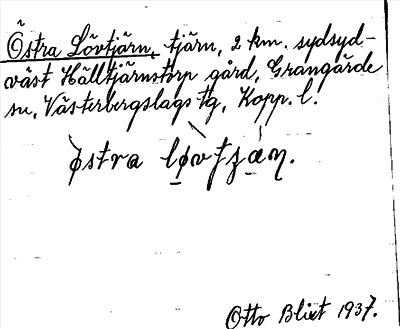 Östra Lövtjärn, tjärn, 2 km. sydsyd-
väst Hälltjärnstorp gård, Grangärde
sn, Västerbergslags tg, Kopp. l.
østra løvtjäṇ.
Otto Blixt 1937.